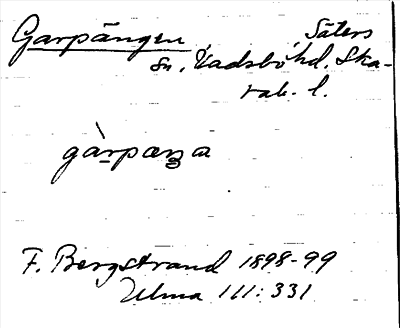 Garpängen Säters
sn, Vadsbo hd, Ska-
rab. l.
gàrpæŋa
F. Bergstrand 1898-99
Ulma 111:331